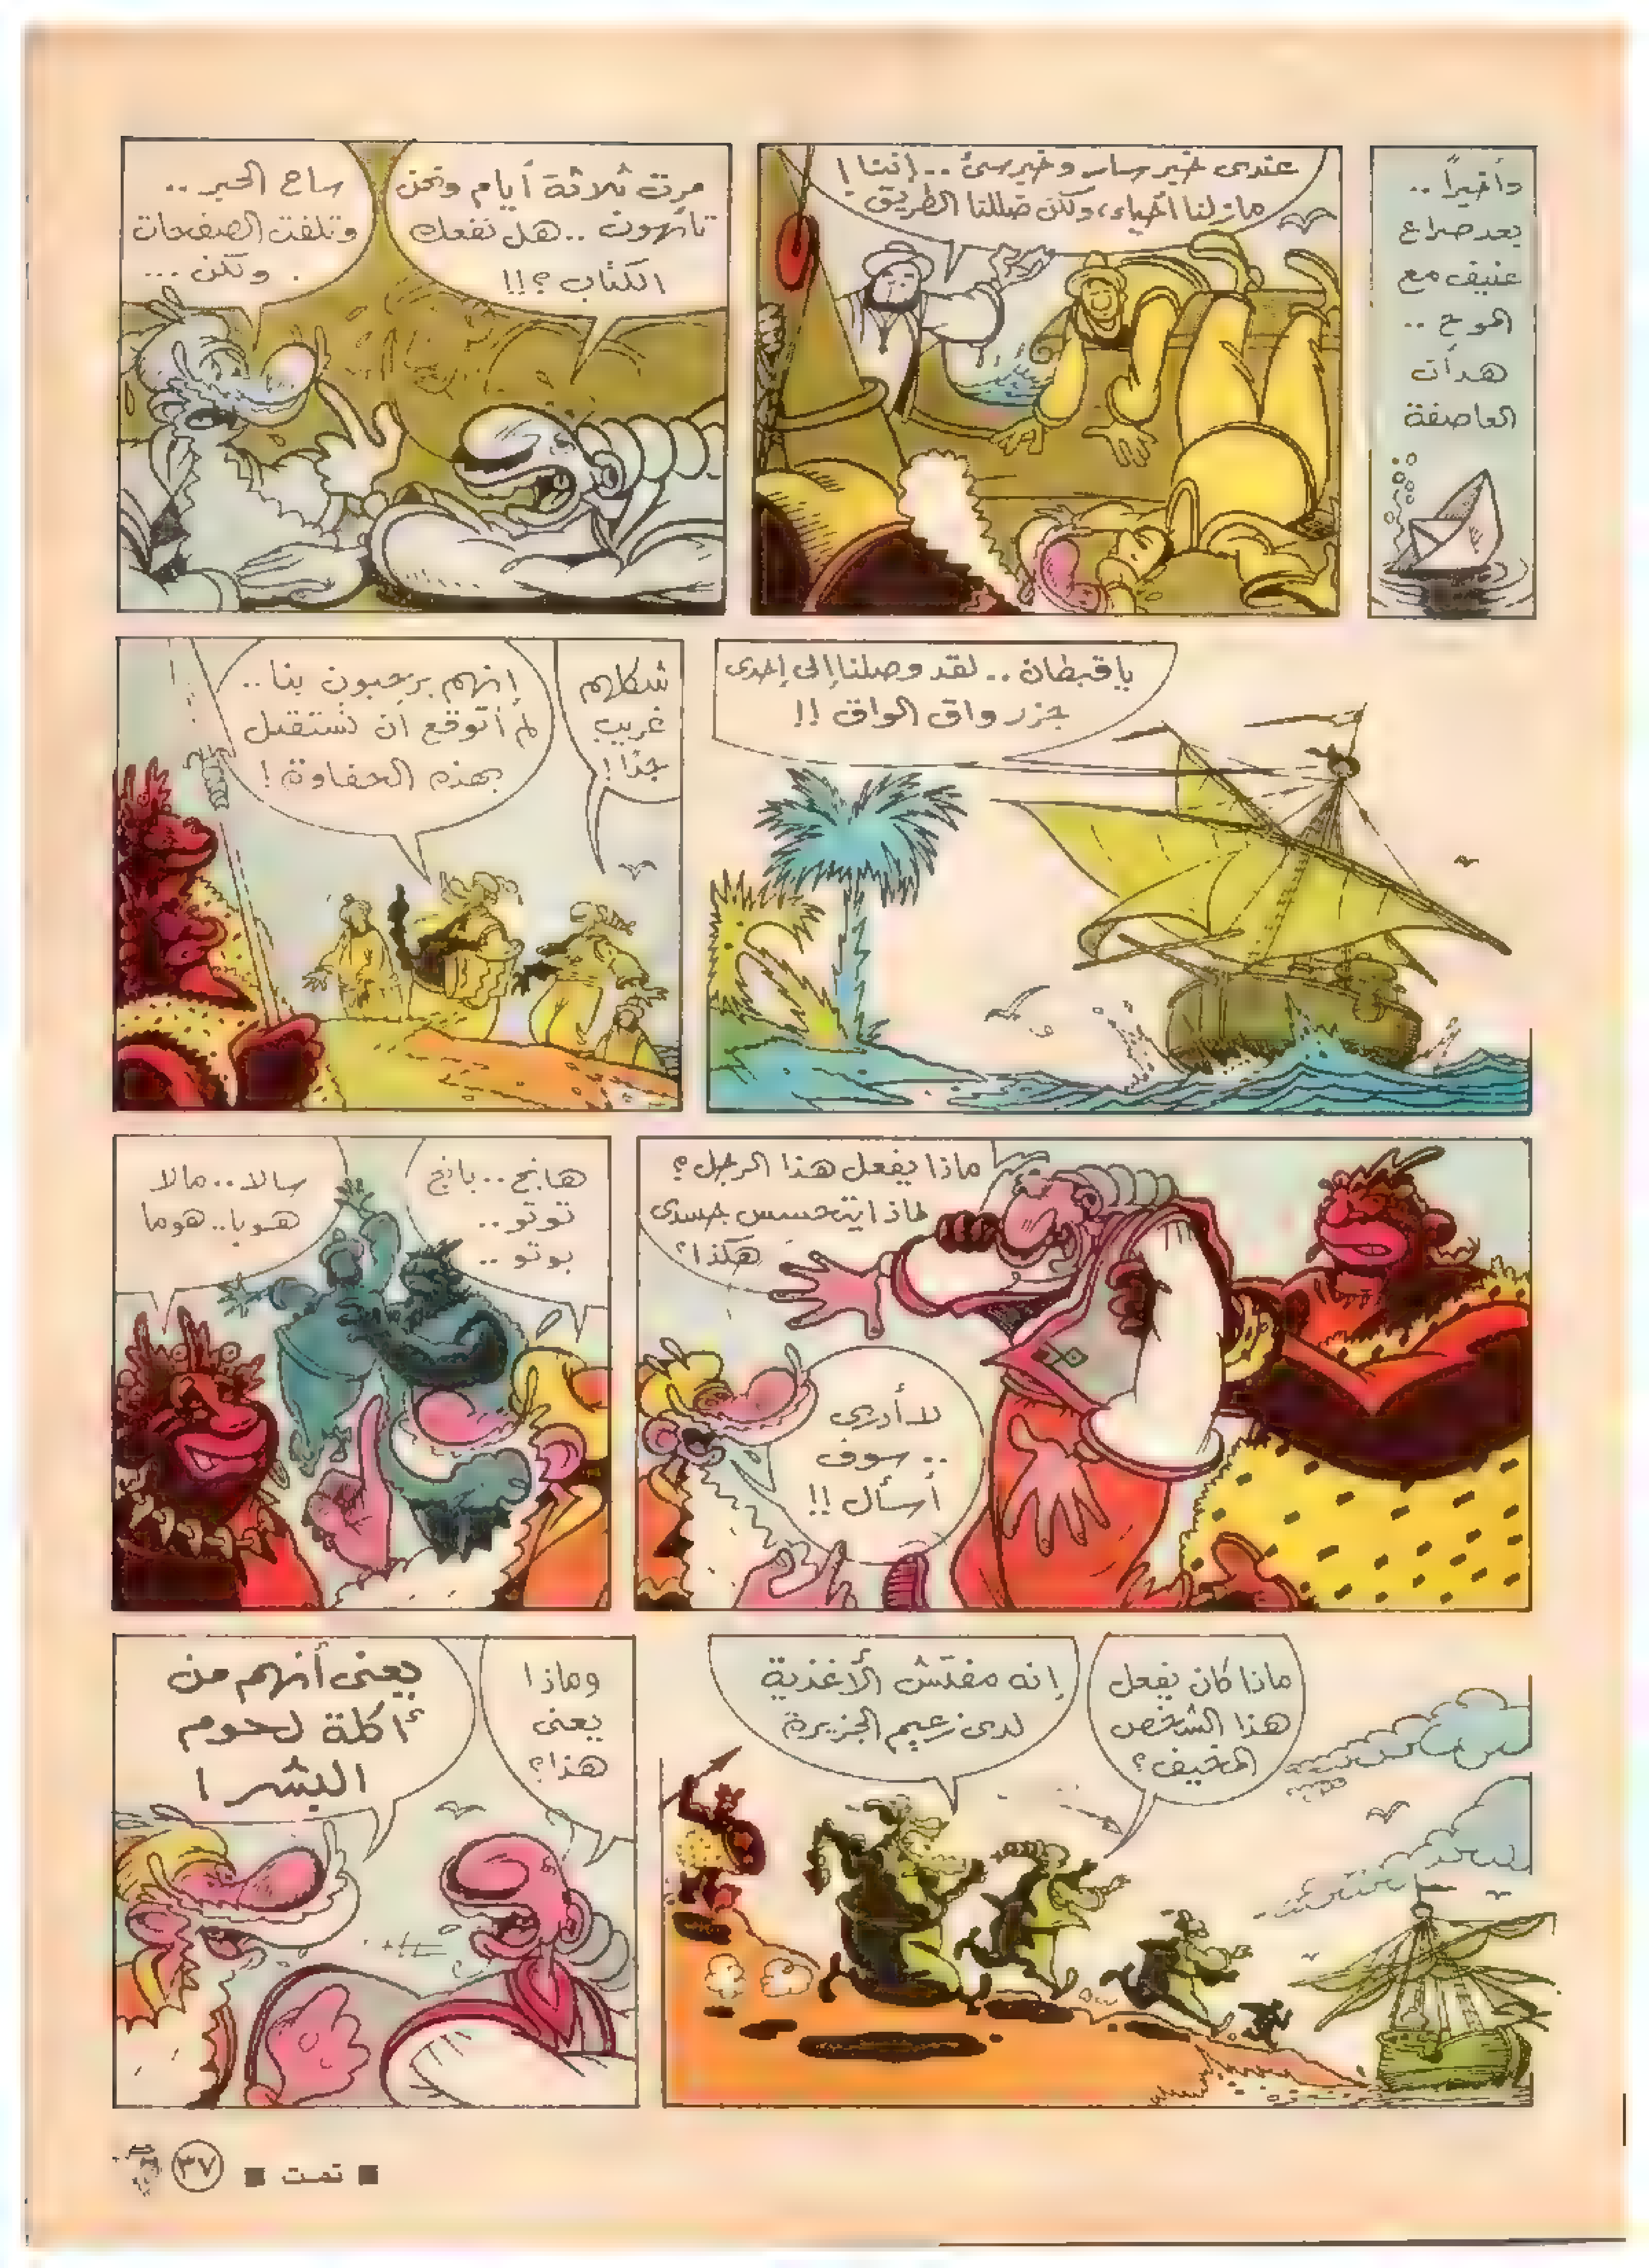 وأخيراً ..
بعد صراع
عنيف مع
الموج ..
هدأت
العاصفة
عندى خبر سار وخبر سئ .. إننا
مازلنا أحياء، ولكن ضللنا الطريق !
مرت ثلاثة أيام ونحن
تائهون .. هل نفعك
الكتاب ؟!!
ساح الحبر ..
وتلفت الصفحات
ولكن ...
ياقبطان .. لقد وصلنا إلى إحدى
جزر واق الواق !!
شكلهم
غريب
جدًا !
إنهم يرحبون بنا ..
لم أتوقع ان نستقبل
بهذه الحفاوة !
ماذا يفعل هذا الرجل ؟
لماذا يتحسس جسدى
هكذا ؟
لا أدرى
.. سوف
أسأل !!
هانج .. بانج
توتو ..
بوتو ..
سالا .. مالا
هوبا .. هوما
ماذا كان يفعل
هذا الشخص
المخيف ؟
إنه مفتش الأغذية
لدى زعيم الجزيرة
وماذا
يعنى
هذا ؟
يعنى أنهم من
أكلة لحوم
البشر !
■ تمت ■
٣٧